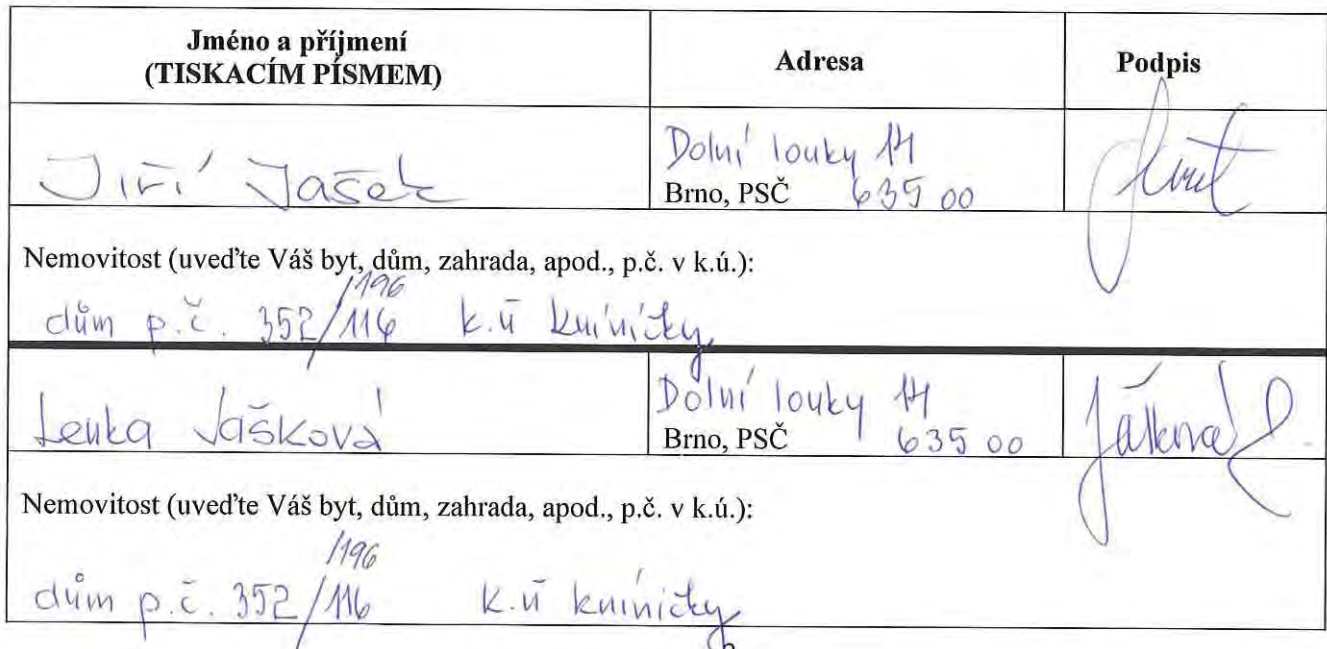 Jméno a příjmení
(TISKACÍM PÍSMEM)
Adresa
Podpis
Jiří Jašek
Dolní louky 14
Brno, PSČ 635 00
Nemovitost (uveďte Váš byt, dům, zahrada, apod., p.č. v k.ú.):
/196
dům p.č. 352/116 k.ú kníničky
Lenka Jašková
Dolní louky 14
Brno, PSČ 635 00
Jašková
Nemovitost (uveďte Váš byt, dům, zahrada, apod., p.č. v k.ú.):
/196
dům p.č. 352/116 k.ú kníničky